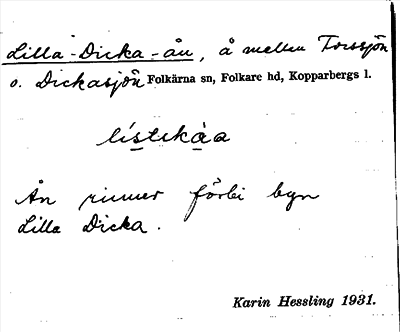 Lilla-Dicka-ån, å mellan Torssjön
o. Dickasjön Folkärna sn, Folkare hd, Kopparbergs l.
Ån rinner förbi byn
Lilla Dicka.
Karin Hessling 1931.